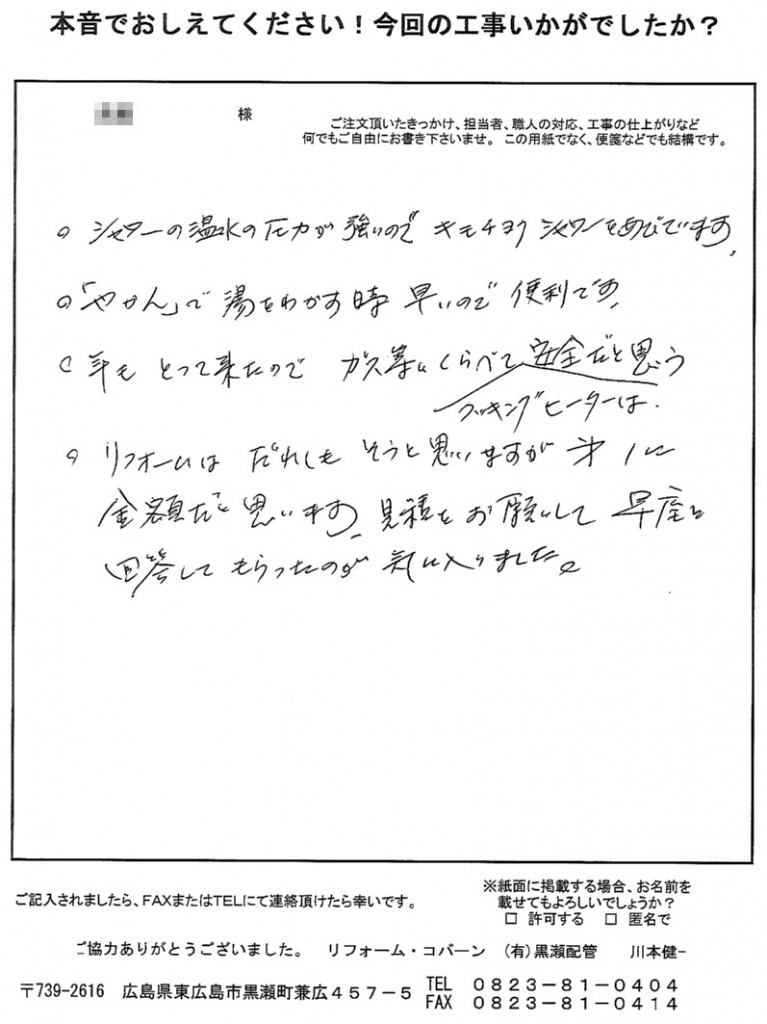 本音でおしえてください！今回の工事いかがでしたか？
様
ご注文頂いたきっかけ、担当者、職人の対応、工事の仕上がりなど
何でもご自由にお書き下さいませ。この用紙でなく、便箋などでも結構です。
○ シャワーの温水の圧力が強いので キモチヨク シャワーをあびてます。
○「やかん」で湯をわかす時 早いので 便利です。
○ 年も とって来たので ガス等にくらべて 安全だと思う
クッキングヒーターは.
○ リフォームは だれしも そうと思いますが 才1に
金額だと思います。見積をお願いして 早座に
回答して もらったのが 気に入りました。
ご記入されましたら、FAXまたはTELにて連絡頂けたら幸いです。
※紙面に掲載する場合、お名前を
載せてもよろしいでしょうか？
□ 許可する □ 匿名で
ご協力ありがとうございました。 リフォーム・コバーン （有）黒瀬配管 川本健一
〒739-2616 広島県東広島市黒瀬町兼広４５７－５
TEL ０８２３－８１－０４０４
FAX ０８２３－８１－０４１４